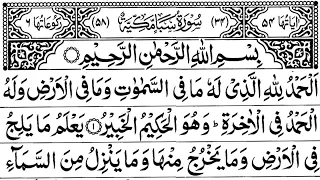 اٰیاتها ۵۴ (۳۴) سُوْرَةُ سَبَاٍ مَكِّیَّةٌ (۵۸) رکوعاتها ۶
بِسْمِ اللّٰهِ الرَّحْمٰنِ الرَّحِیْمِ
اَلْحَمْدُ لِلّٰهِ الَّذِیْ لَهٗ مَا فِی السَّمٰوٰتِ وَمَا فِی الْاَرْضِ وَلَهُ
الْحَمْدُ فِی الْاٰخِرَةِ ؕ وَهُوَ الْحَكِیْمُ الْخَبِیْرُ ۱ یَعْلَمُ مَا یَلِجُ
فِی الْاَرْضِ وَمَا یَخْرُجُ مِنْهَا وَمَا یَنْزِلُ مِنَ السَّمَآءِ